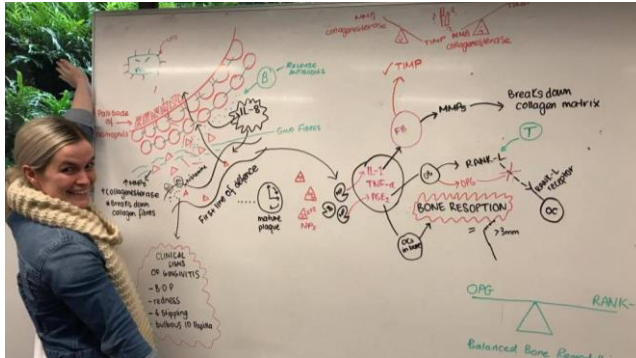 MMPs
collagenesterase
TIMP
MMPs
collagenesterase
TIMP
LPS
Release
antibodies
B
IL-8
Palisade
of
neutrophils
Gum Fibres
↑MMPs
↑Collagenesterase
*Breaks down
collagen fibres
First line of defence
mature
plaque
NPs
IL-1
TNF-α
PGE2
✓TIMP
FB
MMPs
Breaks down
collagen matrix
T
RANK-L
OPG
RANK-L
receptor
OC
BONE RESOPTION
=
>3mm
OCs
in bone
CLINICAL
SIGNS
OF GINGIVITIS
- B.O.P
- redness
- ↓ Stippling
- bulbous ID Papilla
OPG
RANK-
Balanced Bone